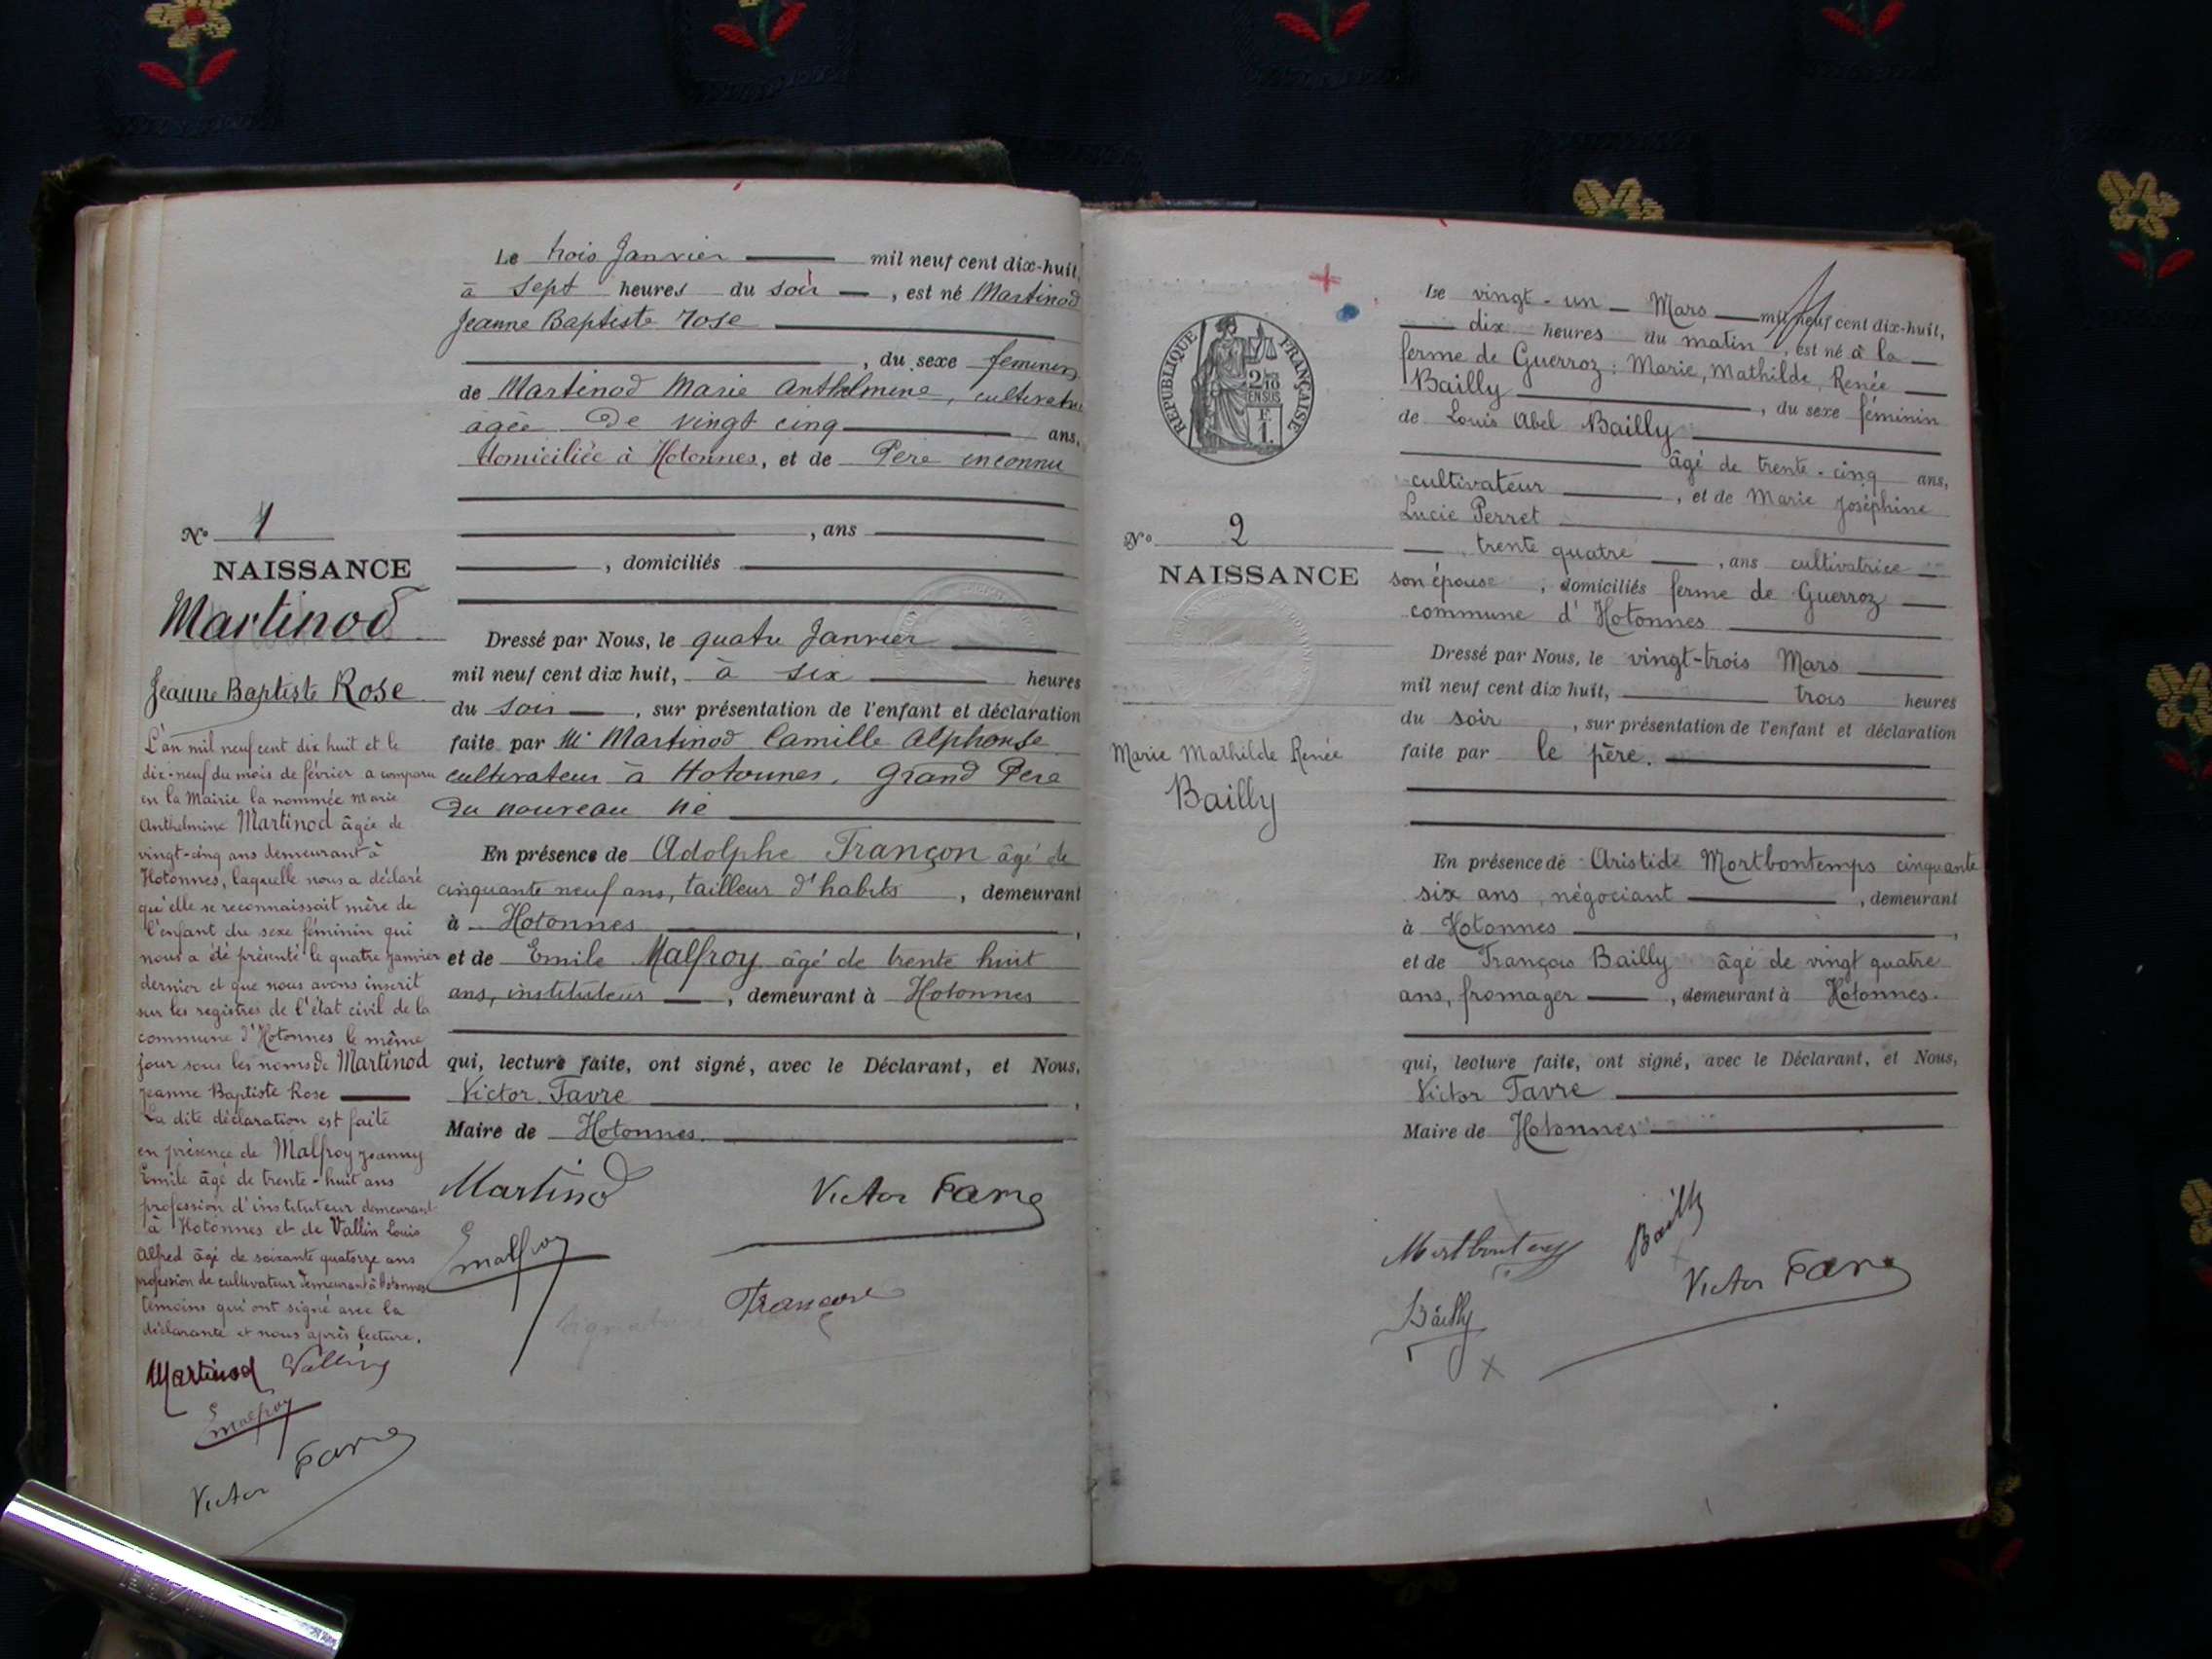 Le trois Janvier mil neuf cent dix-huit,
à sept heures du soir, est né Martinod
Jeanne Baptiste Rose
, du sexe feminin
de Martinod Marie Anthelmine, cultivatrice
agée de vingt cinq ans,
domiciliée à Hotonnes, et de Père inconnu
, ans
, domiciliés
Dressé par Nous, le quatre Janvier
mil neuf cent dix huit, à six heures
du soir, sur présentation de l'enfant et déclaration
faite par Mr Martinod Camille Alphonse
cultivateur à Hotonnes, Grand Père
du nouveau né
En présence de Adolphe Françon âgé de
cinquante neuf ans, tailleur d'habits, demeurant
à Hotonnes,
et de Emile Malfroy âgé de trente huit
ans, instituteur, demeurant à Hotonnes
qui, lecture faite, ont signé, avec le Déclarant, et Nous,
Victor Favre,
Maire de Hotonnes.
Martinod
Victor Favre
Emalfroy
Françon
No 1
NAISSANCE
Martinod
Jeanne Baptiste Rose
L'an mil neuf cent dix huit et le
dix-neuf du mois de février a comparu
en la Mairie la nommée Marie
Anthelmine Martinod âgée de
vingt-cinq ans demeurant à
Hotonnes, laquelle nous a déclaré
qu'elle se reconnaissait mère de
l'enfant du sexe féminin qui
nous a été présenté le quatre janvier
dernier et que nous avons inscrit
sur les registres de l'état civil de la
commune d'Hotonnes le même
jour sous les noms de Martinod
Jeanne Baptiste Rose
La dite déclaration est faite
en présence de Malfroy Joanny
Emile âgé de trente-huit ans
profession d'instituteur demeurant
à Hotonnes et de Vallin Louis
Alfred âgé de soixante quatorze ans
profession de cultivateur demeurant à Hotonnes
témoins qui ont signé avec la
déclarante et nous après lecture.
Martinod Vallin
Emalfroy
Victor Favre
RÉPUBLIQUE FRANÇAISE
2/10
EN SUS
F.
1.
No 2
NAISSANCE
Marie Mathilde Renée
Bailly
Le vingt-un Mars mil neuf cent dix-huit,
dix heures du matin, est né à la
ferme de Guerroz : Marie, Mathilde, Renée
Bailly, du sexe féminin
de Louis Abel Bailly
âgé de trente-cinq ans,
cultivateur, et de Marie Joséphine
Lucie Perret
trente quatre, ans cultivatrice
son épouse, domiciliés ferme de Guerroz
commune d'Hotonnes
Dressé par Nous, le vingt-trois Mars
mil neuf cent dix huit, trois heures
du soir, sur présentation de l'enfant et déclaration
faite par le père.
En présence de Aristide Mortbontemps cinquante
six ans, négociant, demeurant
à Hotonnes,
et de François Bailly âgé de vingt quatre
ans, fromager, demeurant à Hotonnes.
qui, lecture faite, ont signé, avec le Déclarant, et Nous,
Victor Favre
Maire de Hotonnes
Mortbontemps
Bailly
Victor Favre
Bailly